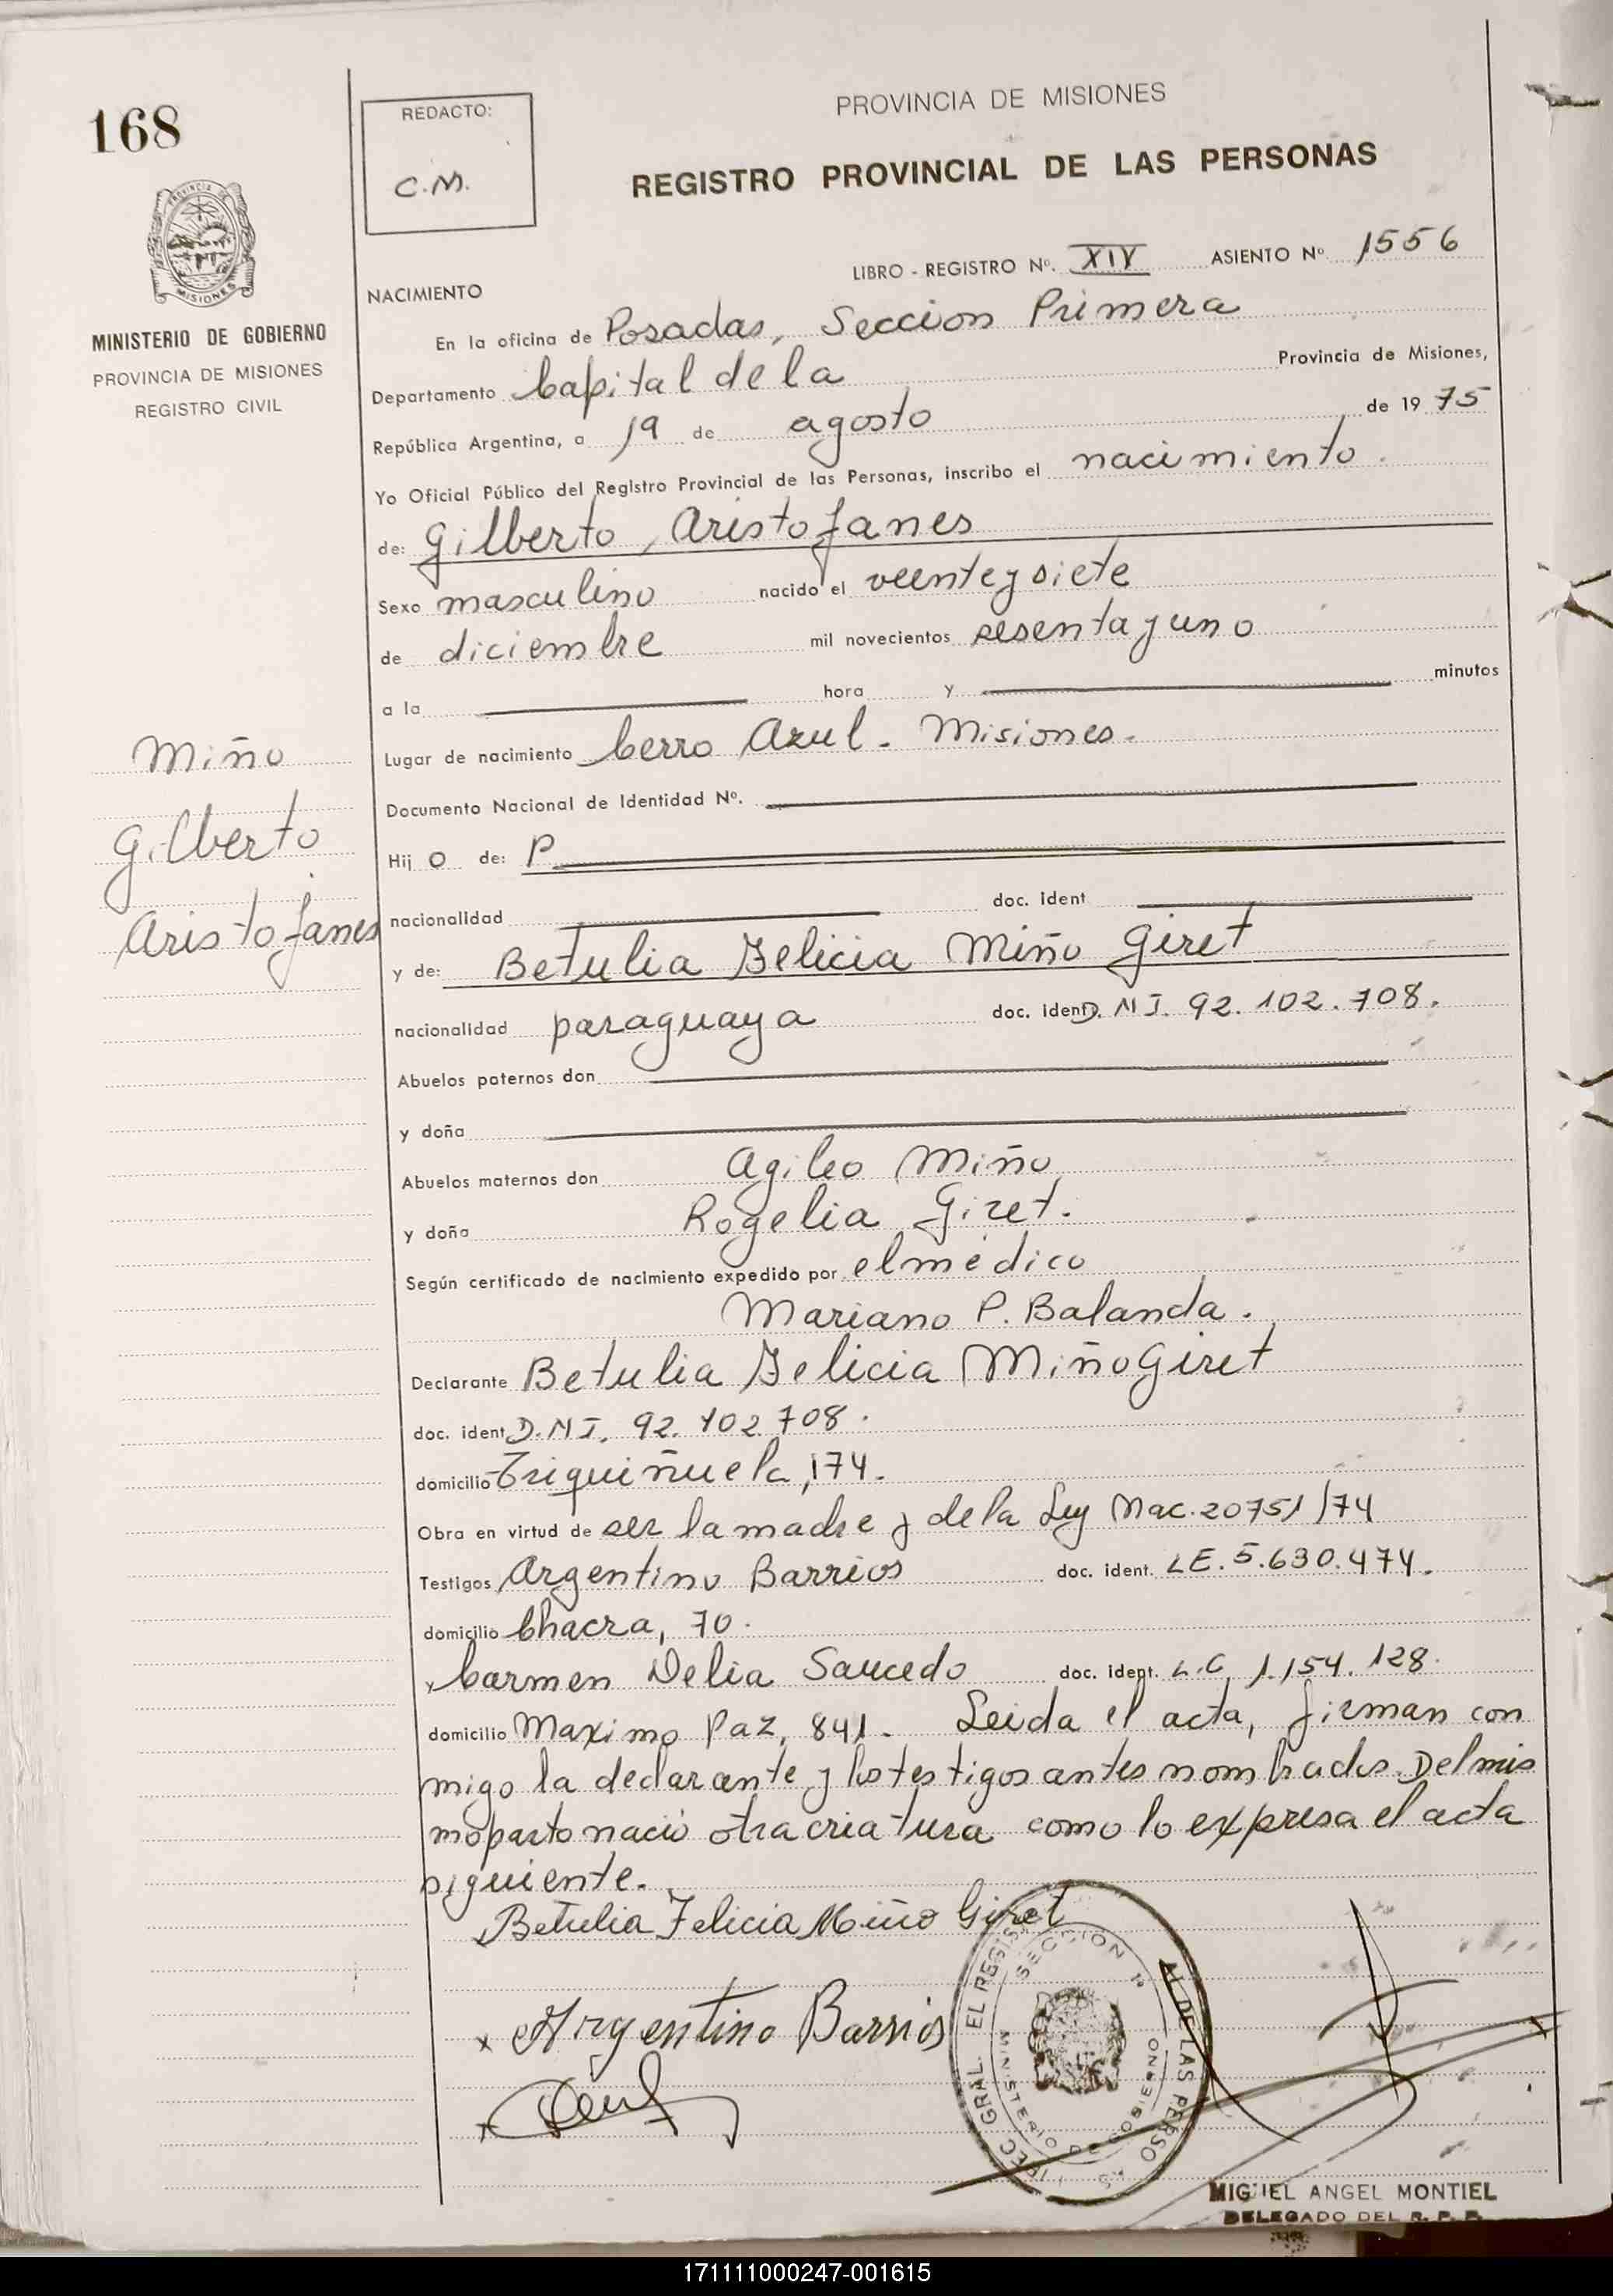 168
MINISTERIO DE GOBIERNO
PROVINCIA DE MISIONES
REGISTRO CIVIL
Miño
Gilberto
Aristofanes
REDACTO:
C.M.
PROVINCIA DE MISIONES
REGISTRO PROVINCIAL DE LAS PERSONAS
LIBRO - REGISTRO Nº. XIV ASIENTO Nº 1556
NACIMIENTO
En la oficina de Posadas, Seccion Primera
Departamento Capital de la Provincia de Misiones,
República Argentina, a 19 de agosto de 1975
Yo Oficial Público del Registro Provincial de las Personas, inscribo el nacimiento.
de: Gilberto, Aristofanes
Sexo masculino nacido el veinte y siete
de diciembre mil novecientos sesenta y uno
a la hora y minutos
Lugar de nacimiento Cerro Azul. Misiones.
Documento Nacional de Identidad Nº.
Hij o de: P
nacionalidad doc. ident
y de: Betulia Felicia Miño Giret
nacionalidad paraguaya doc. ident D.N.I. 92.102.708.
Abuelos paternos don
y doña
Abuelos maternos don Agileo Miño
y doña Rogelia Giret.
Según certificado de nacimiento expedido por el médico
Mariano P. Balanda.
Declarante Betulia Felicia Miño Giret
doc. ident D.N.I. 92.102.708.
domicilio Triquiñuela, 174.
Obra en virtud de ser la madre y de la Ley Nac. 20751/74
Testigos Argentino Barrios doc. ident. LE. 5.630.474.
domicilio Chacra, 70.
y Carmen Delia Saucedo doc. ident. L.C. 1.154.128.
domicilio Maximo Paz, 841. Leida el acta, firman con
migo la declarante y los testigos antes nombrados. Del mis
mo parto nació otra criatura como lo expresa el acta
siguiente.
Betulia Felicia Miño Giret
x Argentino Barrios
SECCION 1ª
MINISTERIO DE GOBIERNO
MIGUEL ANGEL MONTIEL
DELEGADO DEL R. P. P.
171111000247-001615